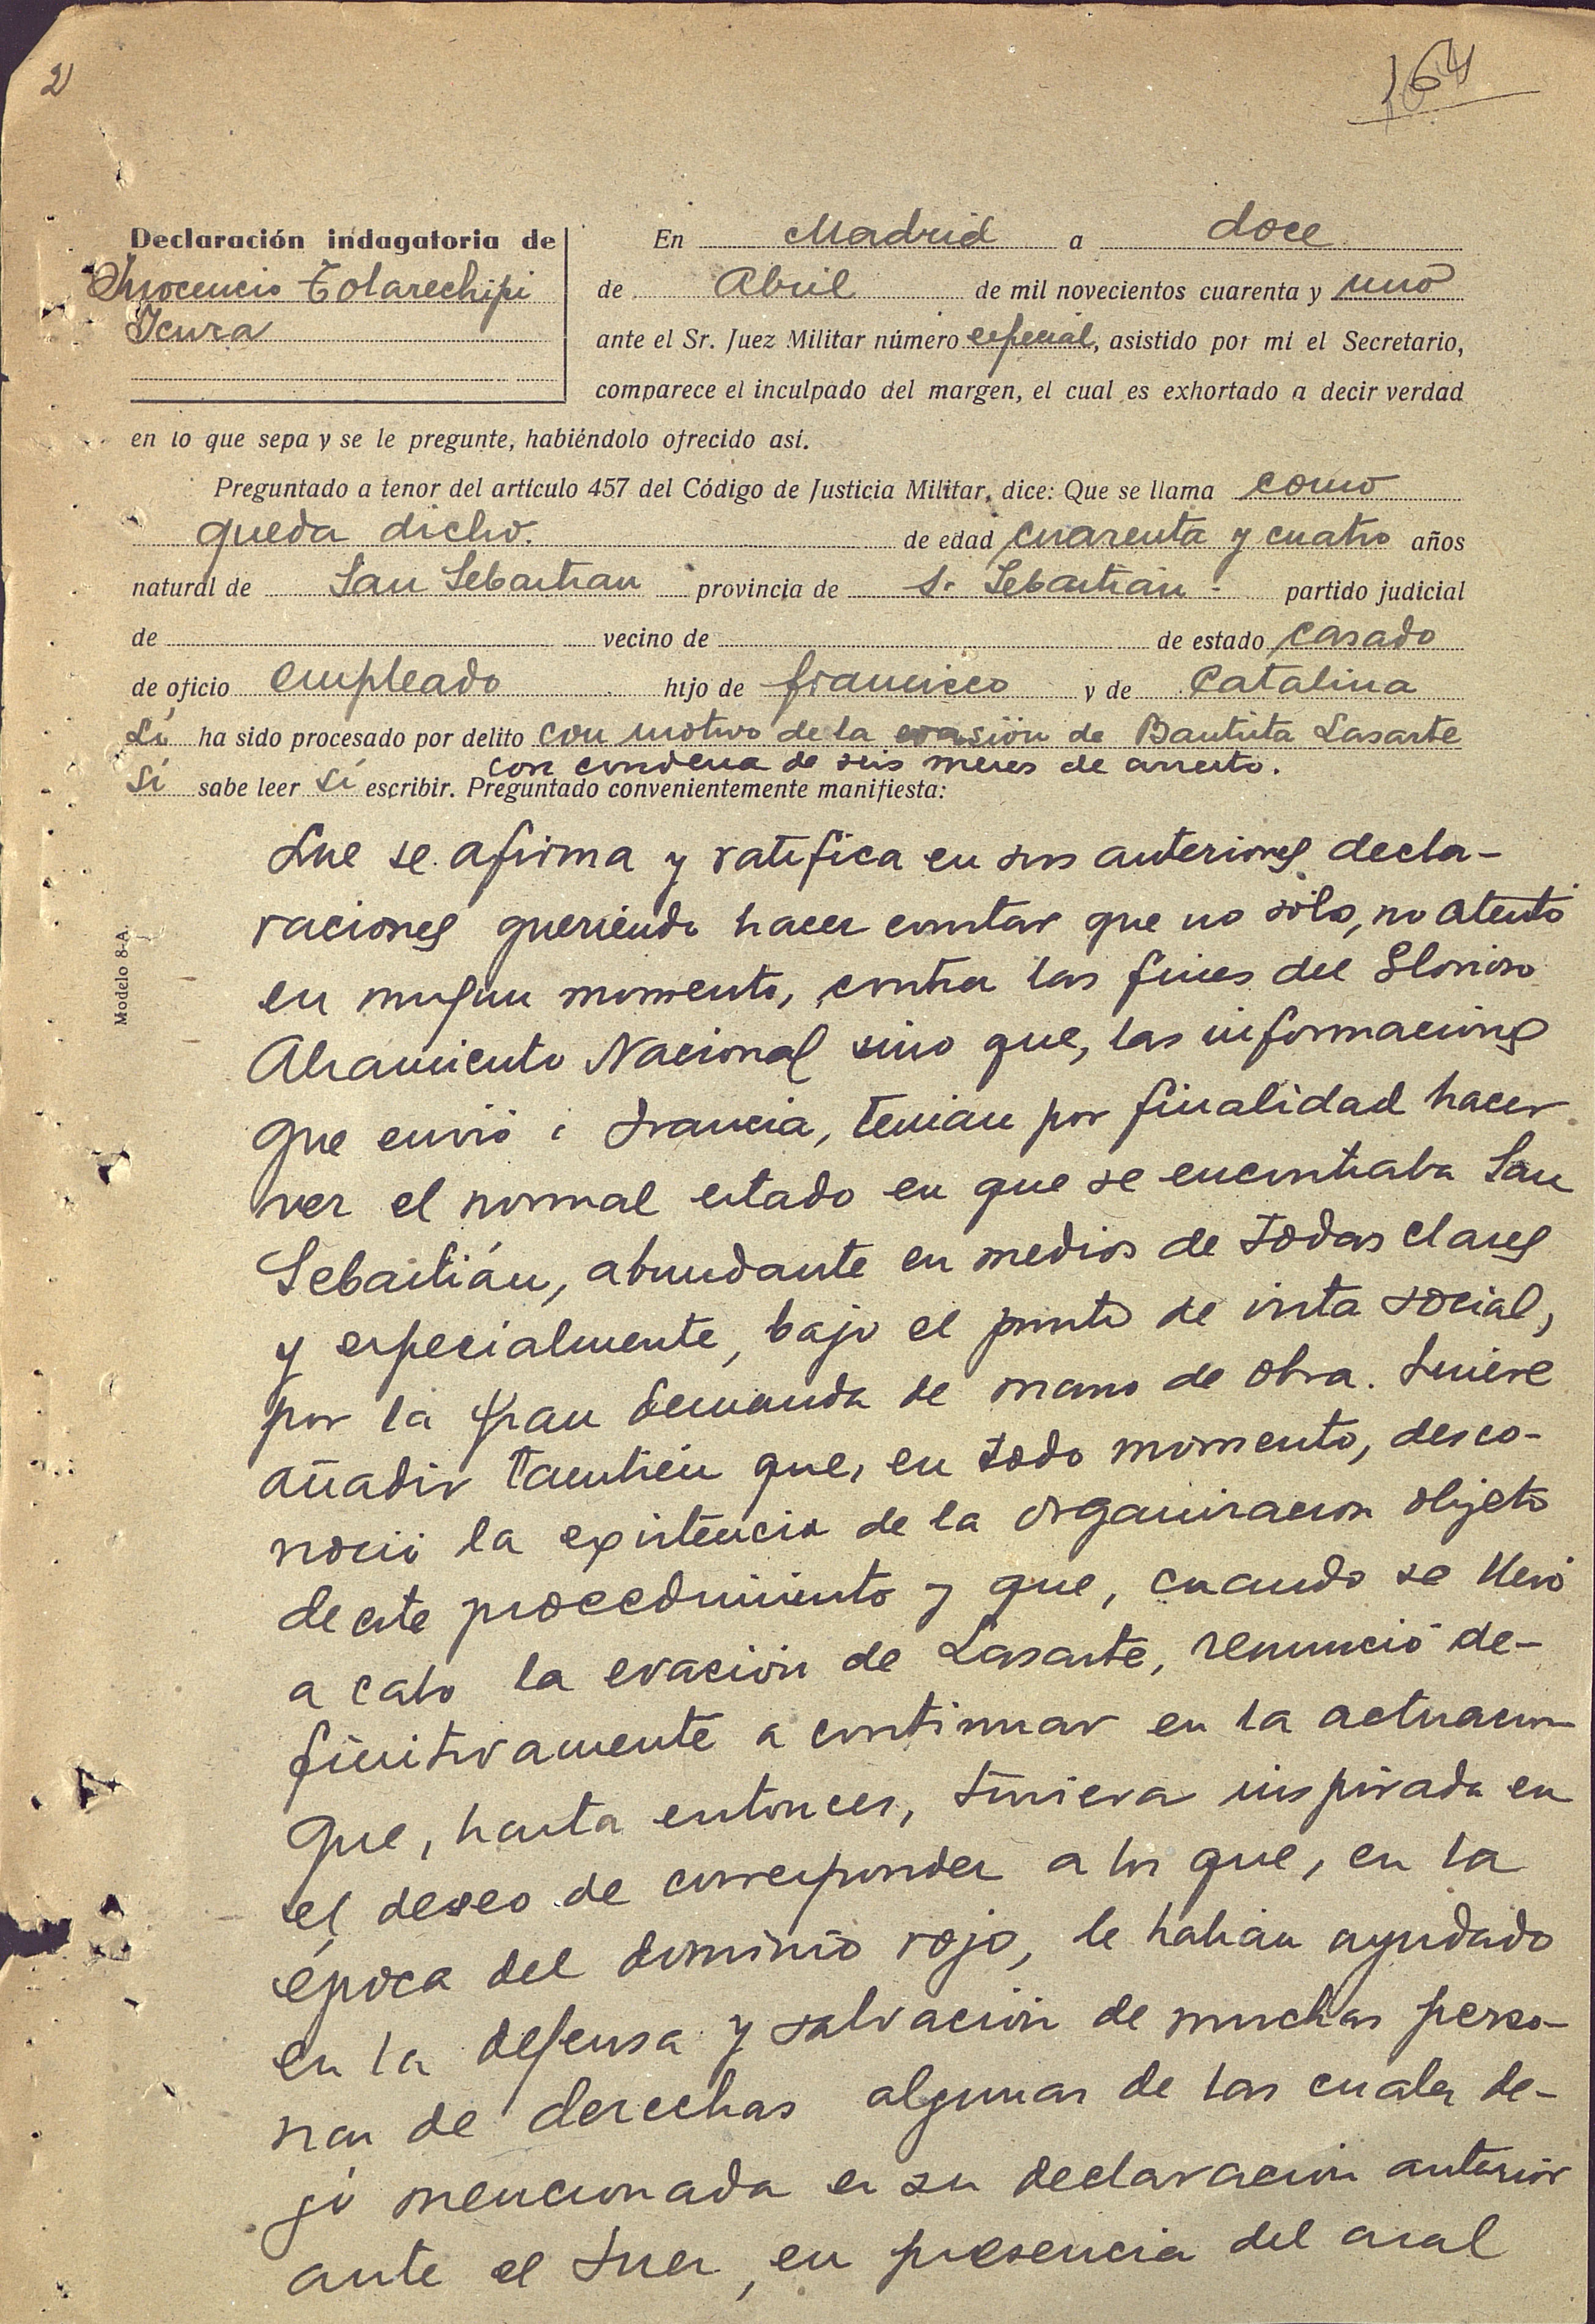 2
164
Declaración indagatoria de
Inocencio Tolarechipi
Icura
En Madrid a doce
de Abril de mil novecientos cuarenta y uno
ante el Sr. Juez Militar número especial, asistido por mi el Secretario,
comparece el inculpado del margen, el cual es exhortado a decir verdad
en lo que sepa y se le pregunte, habiéndolo ofrecido así.
Preguntado a tenor del artículo 457 del Código de Justicia Militar, dice: Que se llama como
queda dicho. de edad cuarenta y cuatro años
natural de San Sebastian provincia de S. Sebastián - partido judicial
de vecino de de estado casado
de oficio empleado hijo de francisco y de Catalina
Sí ha sido procesado por delito con motivo de la evasión de Bautista Lasarte
con condena de seis meses de arresto.
Sí sabe leer sí escribir. Preguntado convenientemente manifiesta:
Modelo 8-A.
Que se afirma y ratifica en sus anteriores decla-
raciones queriendo hacer constar que no sólo, no atentó
en ningun momento, contra los fines del Glorioso
Alzamiento Nacional sino que, las informaciones
que envió a Francia, tenian por finalidad hacer
ver el normal estado en que se encontraba San
Sebastián, abundante en medios de todas clases
y especialmente, bajo el punto de vista social,
por la gran demanda de mano de obra. Quiere
añadir también que, en todo momento, desco-
noció la existencia de la organizacion objeto
de este procedimiento y que, cuando se llevó
a cabo la evación de Lasarte, renunció de-
finitivamente a continuar en la actuacion
que, hasta entonces, tuviera inspirada en
el deseo de corresponder a los que, en la
época del dominio rojo, le habian ayudado
en la defensa y salvación de muchas perso-
nas de derechas algunas de las cuales de-
jó mencionada en su declaración anterior
ante el Juez, en presencia del cual